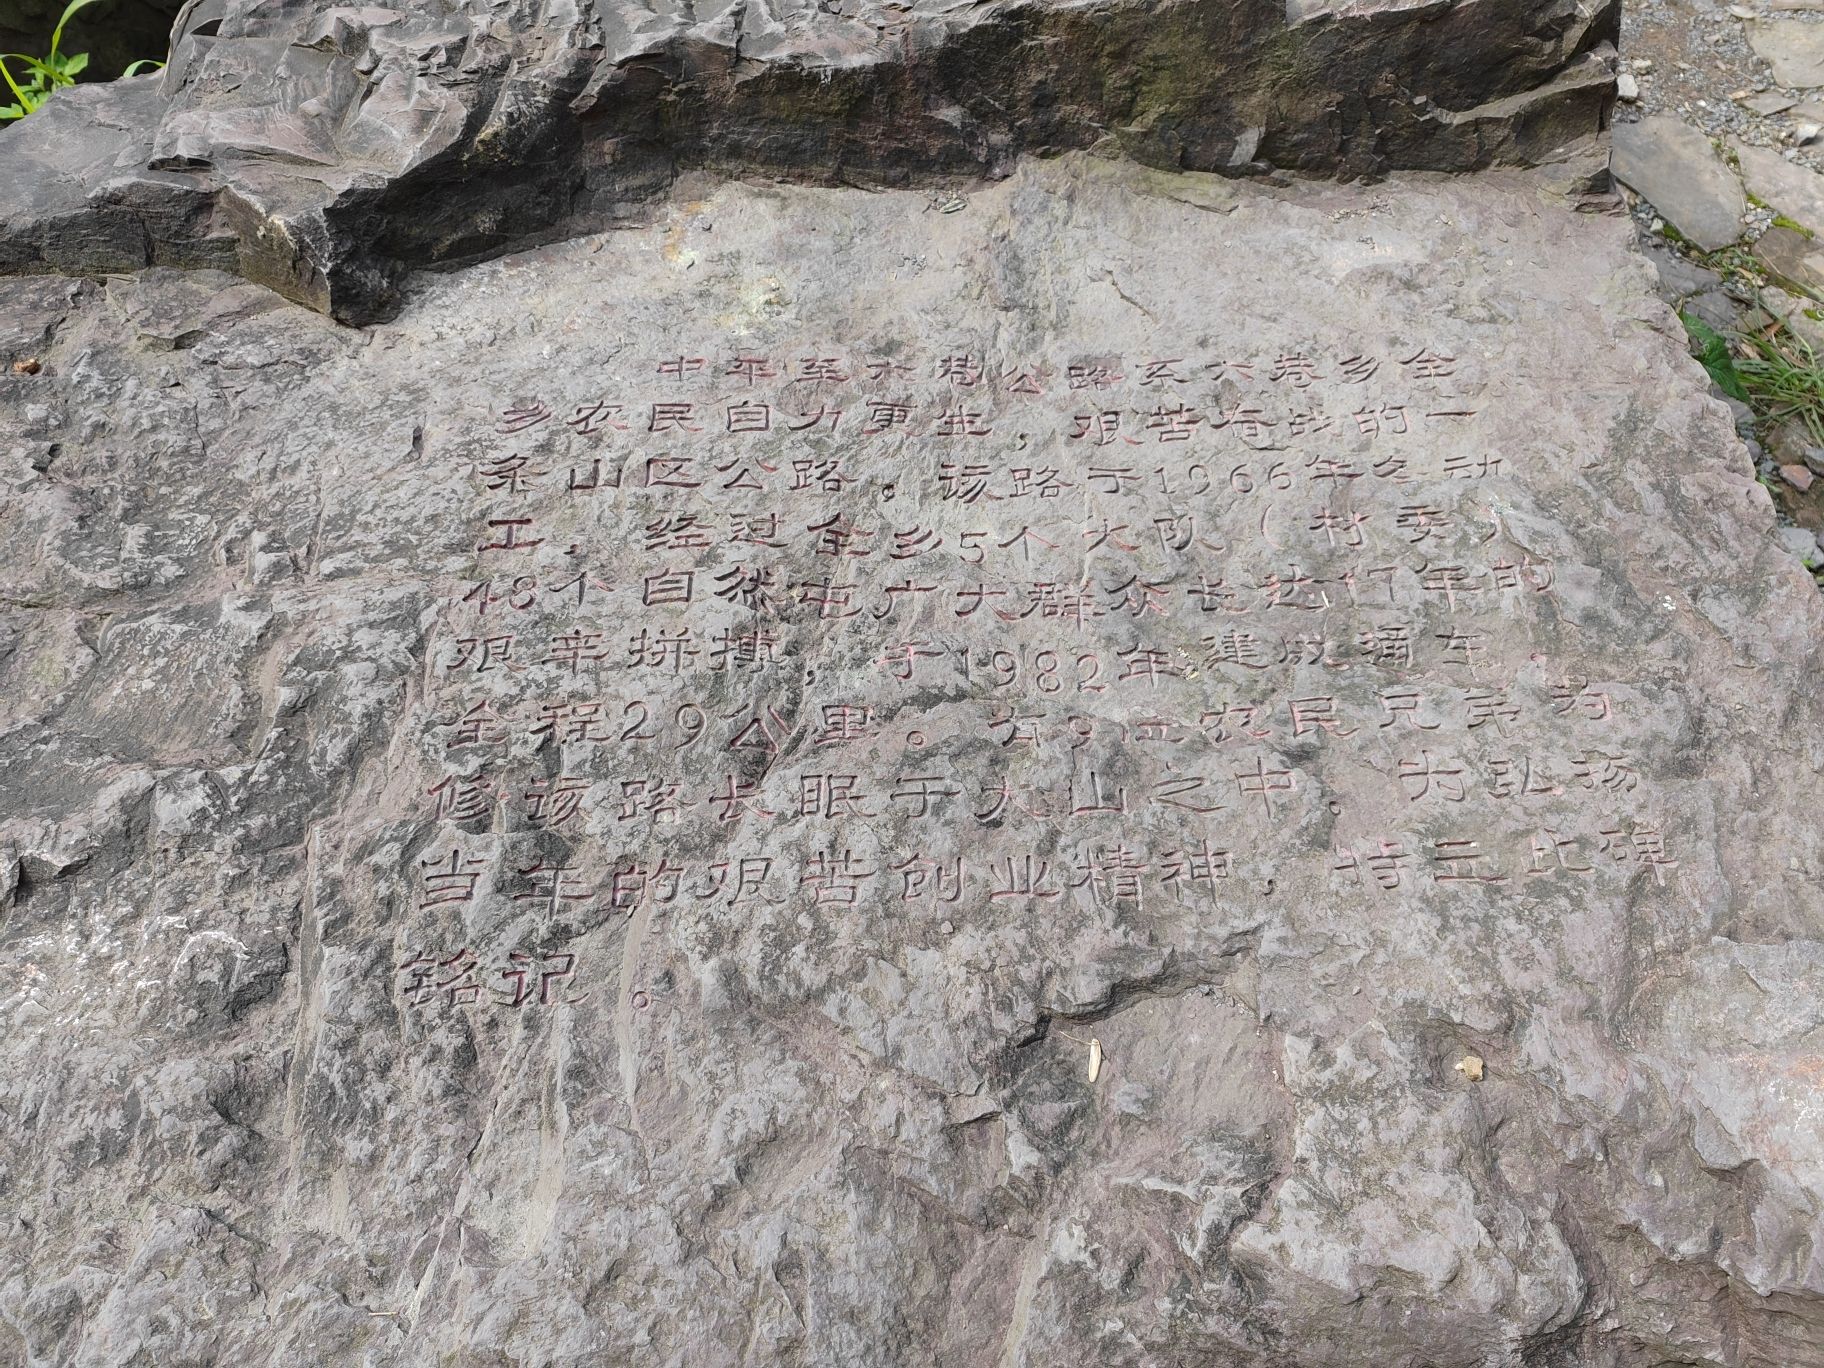 中平至六巷公路系六巷乡全
乡农民自力更生，艰苦奋战的一
条山区公路。该路于1966年冬动
工，经过全乡5个大队（村委）
48个自然屯广大群众长达17年的
艰辛拼搏，于1982年建成通车，
全程29公里。有9位农民兄弟为
修该路长眠于大山之中。为弘扬
当年的艰苦创业精神，特立此碑
铭记。